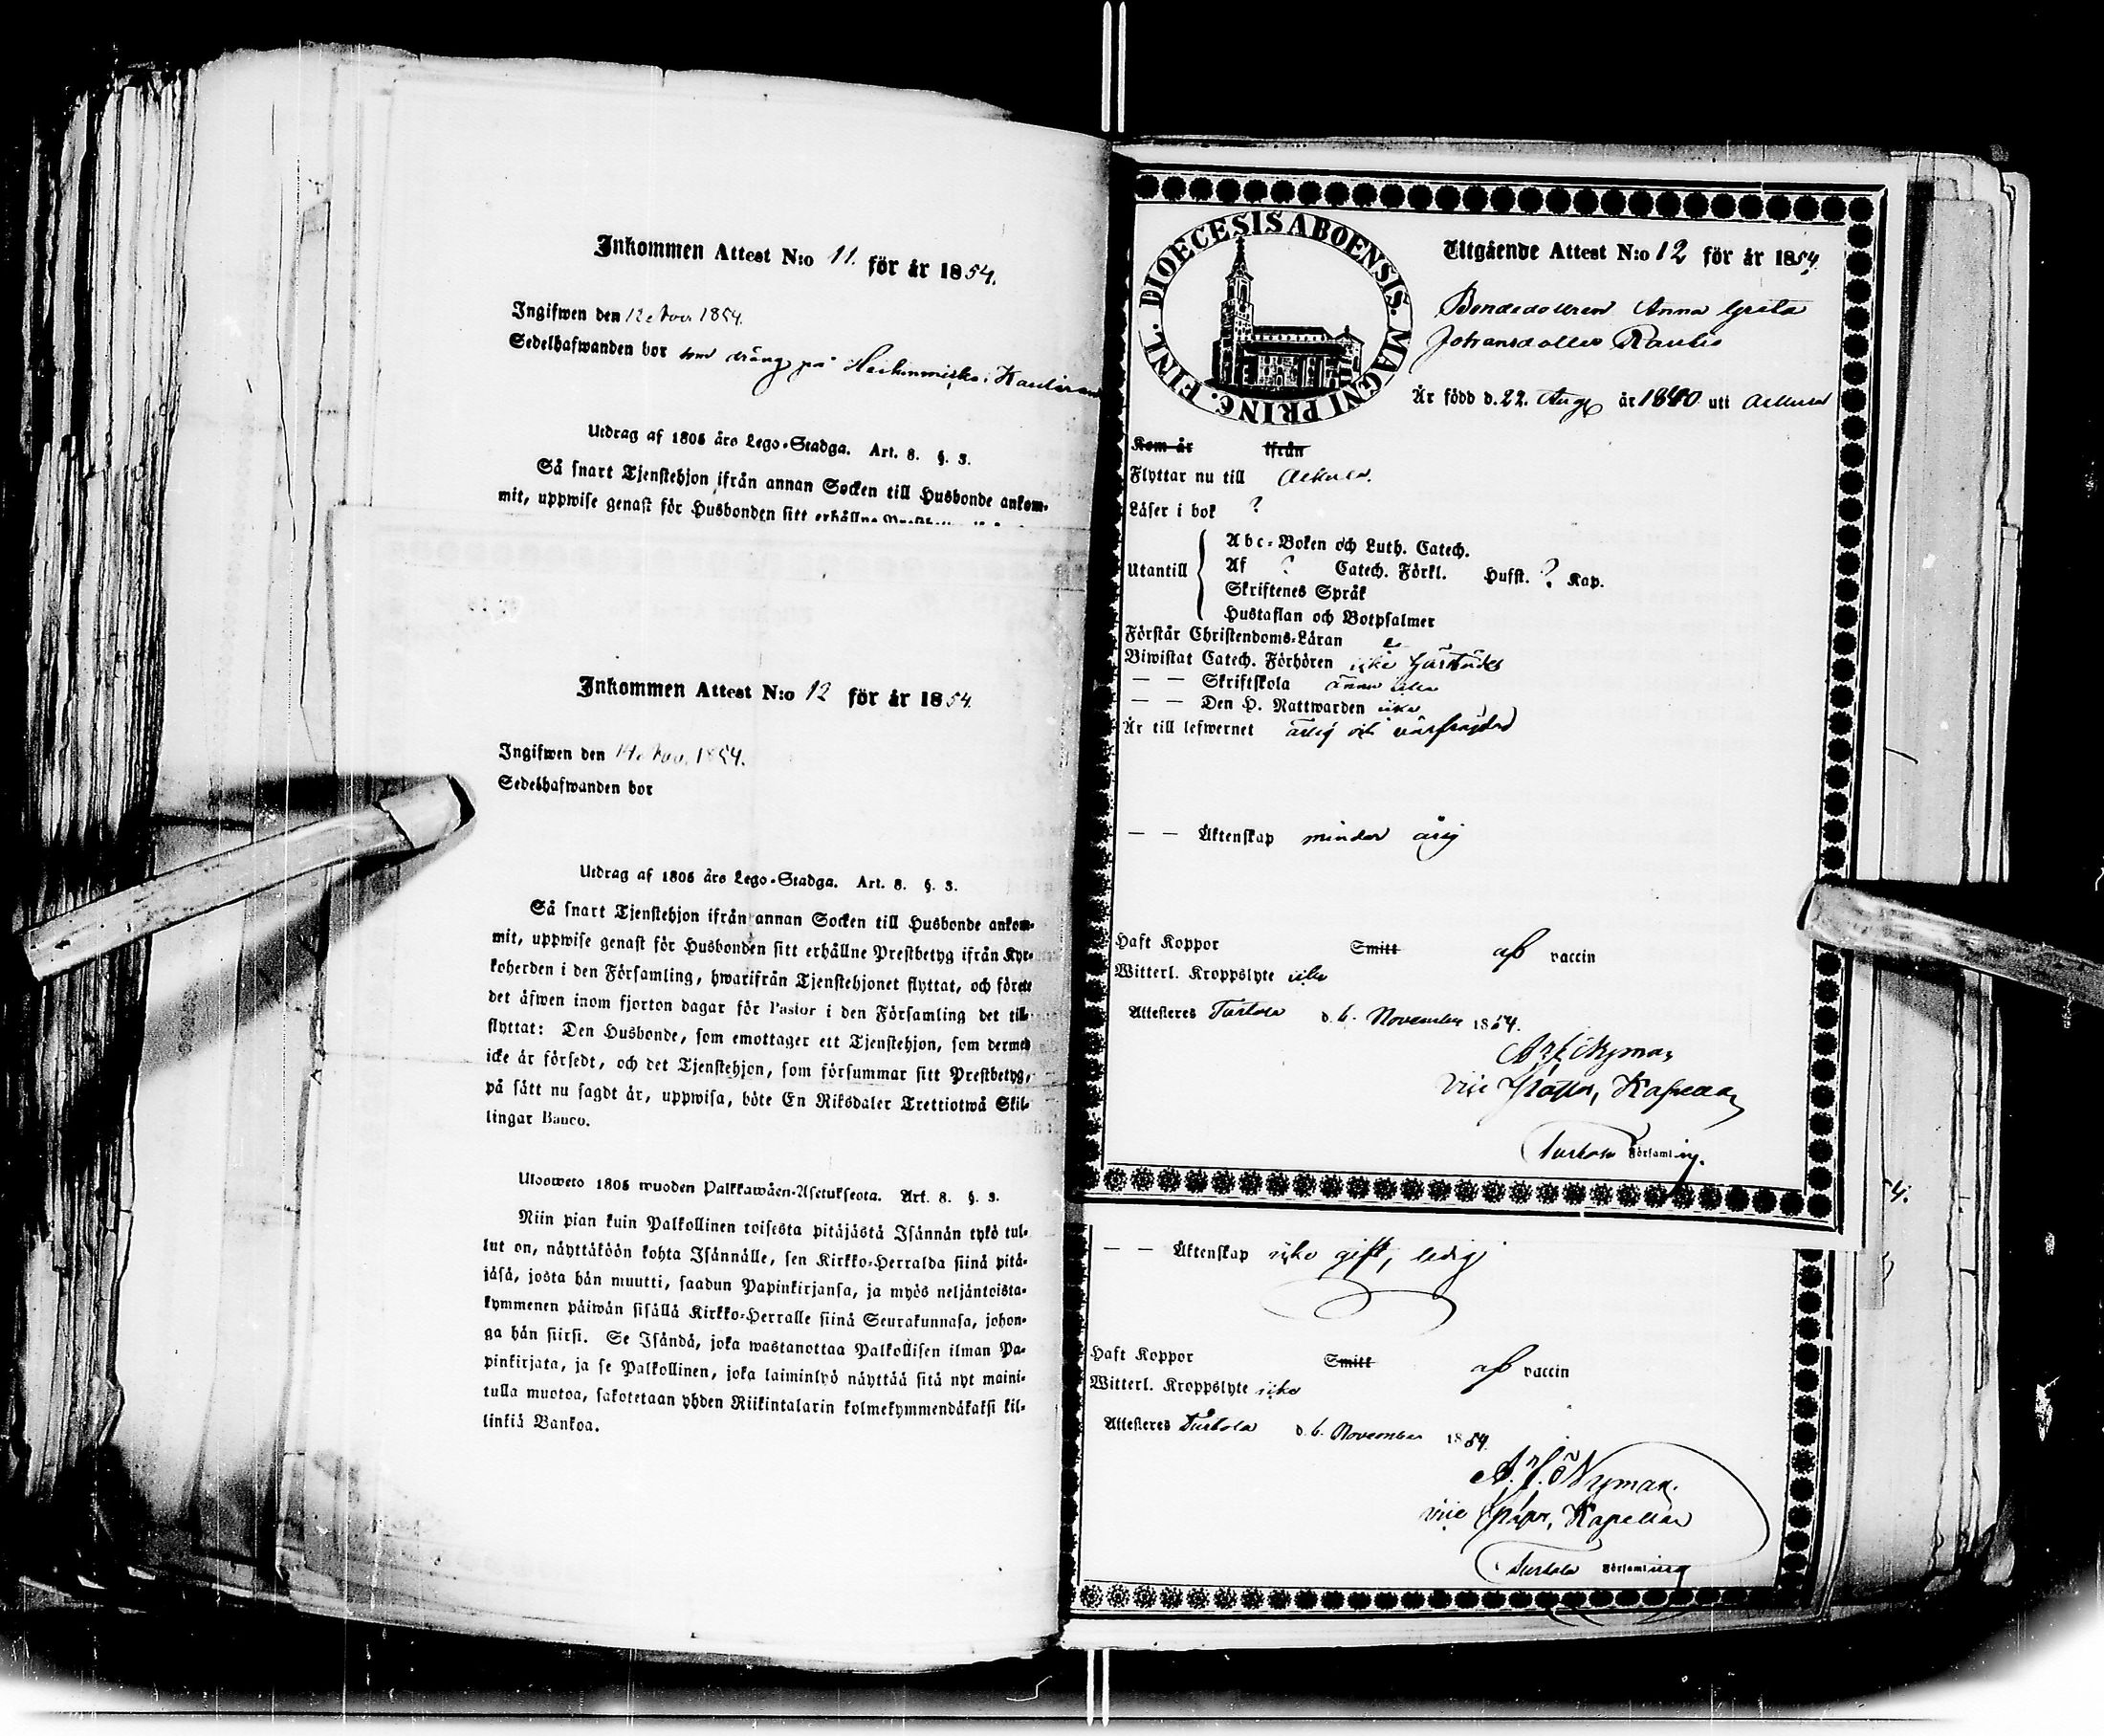 Inkommen Attest N:o 11. för år 1854.
Ingifwen den 12 Nov. 1854.
Sedelhafwanden bor som dräng på
Utdrag af 1805 års Lego-Stadga. Art. 8. §. 3.
Så snart Tjenstehjon ifrån annan Socken till Husbonde ankom-
mit, uppwise genast för Husbonden sitt erhållne
Inkommen Attest N:o 12 för år 1854.
Ingifwen den Nov. 1854.
Sedelhafwanden bor
Utdrag af 1805 års Lego-Stadga. Art. 8. §. 3.
Så snart Tjenstehjon ifrån annan Socken till Husbonde ankom-
mit, uppwise genast för Husbonden sitt erhållne Prestbetyg ifrån Kyr-
koherden i den Församling, hwarifrån Tjenstehjonet flyttat, och förete
det äfwen inom fjorton dagar för Pastor i den Församling det till-
flyttat: Den Husbonde, som emottager ett Tjenstehjon, som dermed
icke är försedt, och det Tjenstehjon, som försummar sitt Prestbetyg,
på sätt nu sagdt är, uppwisa, böte En Riksdaler Trettiotwå Skil-
lingar Banco.
Ulosweto 1805 wuoden Palkkawäen-Asetuksesta. Art. 8. §. 3.
Niin pian kuin Palkollinen toisesta pitäjästä Isännän tykö tul-
lut on, näyttäköön kohta Isännälle, sen Kirkko-Herralda siinä pitä-
jäsä, josta hän muutti, saadun Papinkirjansa, ja myös neljäntoista-
kymmenen päiwän sisällä Kirkko-Herralle siinä Seurakunnasa, johon-
ga hän siirsi. Se Isändä, joka wastanottaa Palkollisen ilman Pa-
pinkirjata, ja se Palkollinen, joka laiminlyö näyttää sitä nyt maini-
tulla muotoa, sakotetaan yhden Riikintalarin kolmekymmendäkaksi kil-
linkiä Bankoa.
DIOECESIS ABOENSIS. MAGNI PRINC. FINL.
Utgående Attest N:o 12 för år 1854.
Bondedottren Anna Greta
Johansdotter Rautio
Är född d. 22. Aug år 1840 uti
Kom år ifrån
Flyttar nu till
Läser i bok ?
Utantill
Abc-Boken och Luth. Catech.
Af ? Catech. Förkl. Hufst. ? Kap.
Skriftenes Språk
Hustaflan och Botpsalmer
Förstår Christendoms-Läran
Biwistat Catech. Förhören icke härstädes
— — Skriftskola ännu icke
— — Den H. Nattwarden icke
Är till lefwernet ärlig och wälfrägdad
— — Äktenskap minder årig
Haft Koppor Smitt af vaccin
Witterl. Kroppslyte icke
Attesteres Turtola d. 6. November 1854.
Nyman
vice Pastor, Kapellan
Turtola Församling.
— — Äktenskap icke gift, ledig
Haft Koppor Smitt af vaccin
Witterl. Kroppslyte icke
Attesteres Turtola d. 6. November 1854.
Nyman.
vice Pastor, Kapellan
Turtola Församling
4.